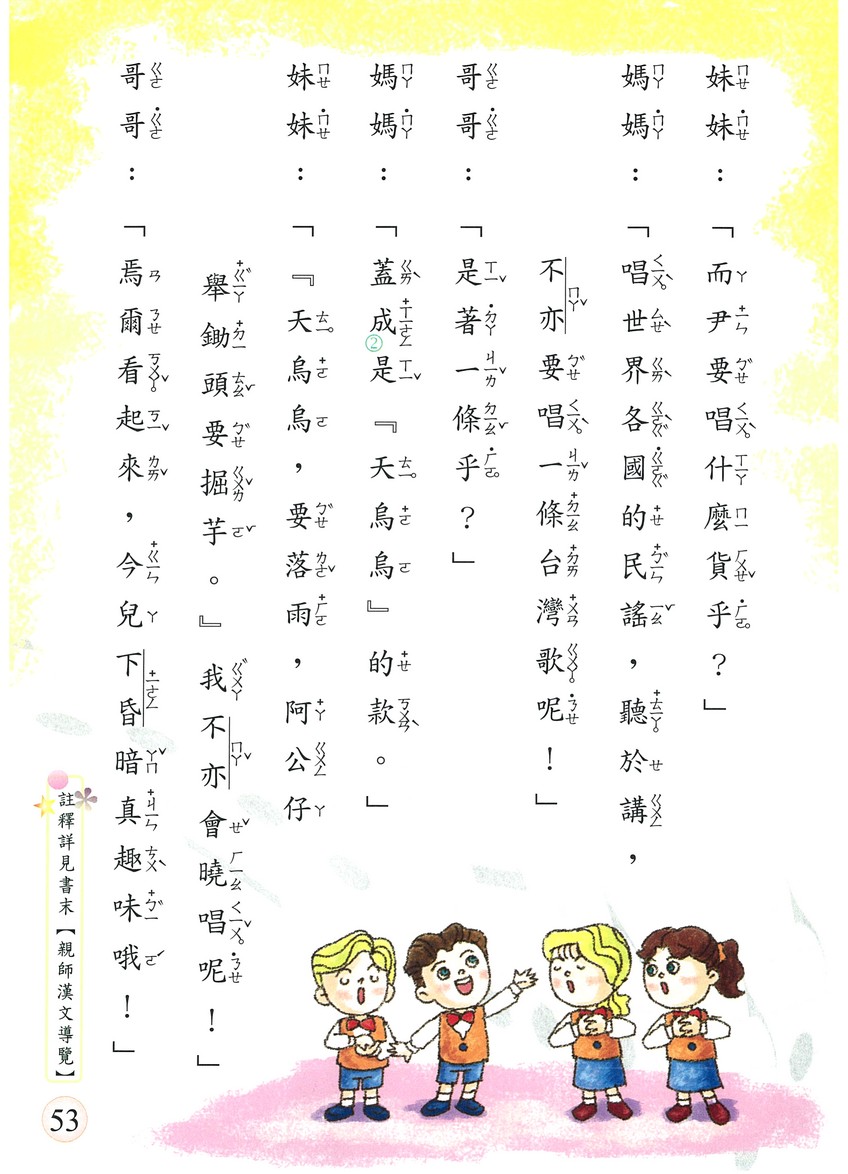 妹妹：「而尹要唱什麼貨乎？」
媽媽：「唱世界各國的民謠，聽於講，
不亦要唱一條台灣歌呢！」
哥哥：「是著一條乎？」
媽媽：「蓋成②是『天烏烏』的款。」
妹妹：「『天烏烏，要落雨，阿公仔
舉鋤頭要掘芋。』我不亦會曉唱呢！」
哥哥：「焉爾看起來，今兒下昏暗真趣味哦！」
註釋詳見書末【親師漢文導覽】
53